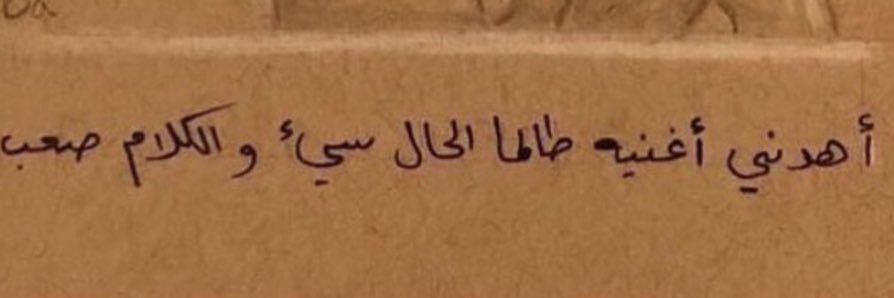 أهدني أغنيه طالما الحال سيء و الكلام صعب